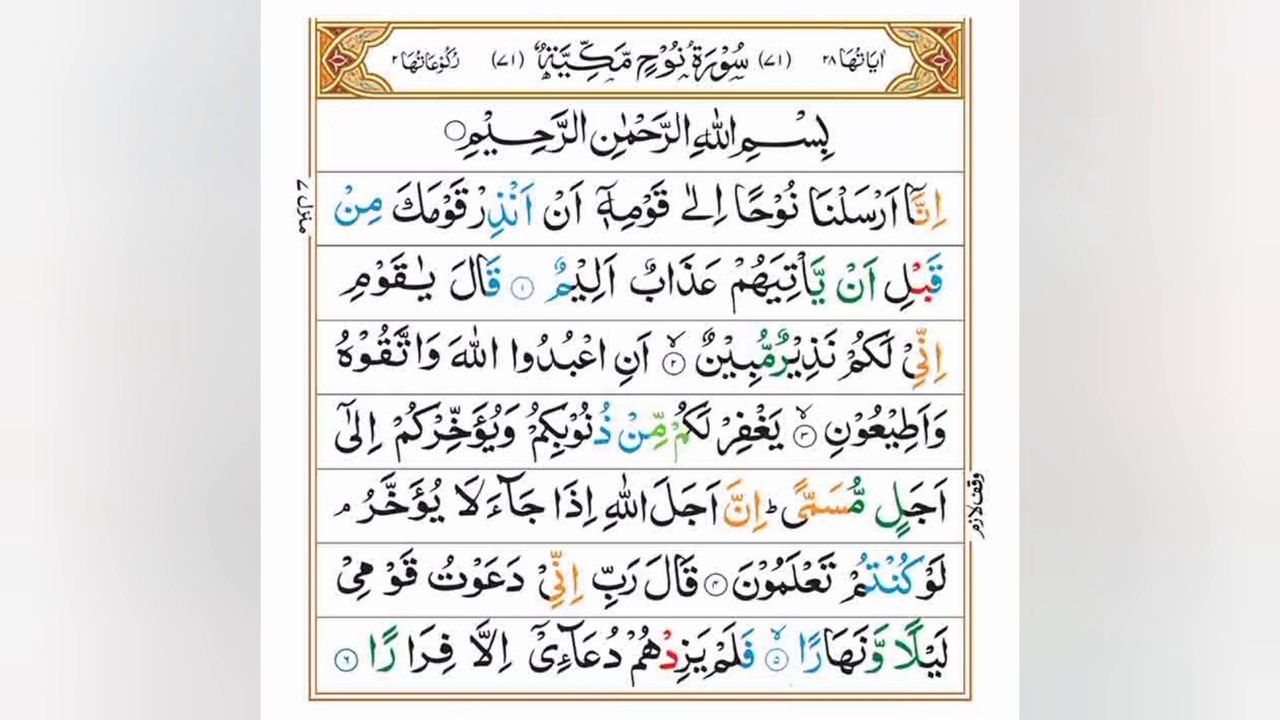 اٰيَاتُهَا ٢٨ (٧١) سُوْرَةُ نُوْحٍ مَّكِّيَّةٌ (٧١) رُكُوْعَاتُهَا ٢
بِسْمِ اللّٰهِ الرَّحْمٰنِ الرَّحِيْمِ ○
اِنَّاۤ اَرْسَلْنَا نُوْحًا اِلٰى قَوْمِهٖۤ اَنْ اَنْذِرْ قَوْمَكَ مِنْ
منزل ٧
قَبْلِ اَنْ يَّاْتِيَهُمْ عَذَابٌ اَلِيْمٌ ۝١ قَالَ يٰقَوْمِ
اِنِّيْ لَكُمْ نَذِيْرٌ مُّبِيْنٌ ۙ۝٢ اَنِ اعْبُدُوا اللّٰهَ وَاتَّقُوْهُ
وَاَطِيْعُوْنِ ۙ۝٣ يَغْفِرْ لَكُمْ مِّنْ ذُنُوْبِكُمْ وَيُؤَخِّرْكُمْ اِلٰۤى
اَجَلٍ مُّسَمًّى ؕ اِنَّ اَجَلَ اللّٰهِ اِذَا جَآءَ لَا يُؤَخَّرُ ۘ
وقف لازم
لَوْ كُنْتُمْ تَعْلَمُوْنَ ۝٤ قَالَ رَبِّ اِنِّيْ دَعَوْتُ قَوْمِيْ
لَيْلًا وَّنَهَارًا ۙ۝٥ فَلَمْ يَزِدْهُمْ دُعَآءِيْۤ اِلَّا فِرَارًا ۝٦